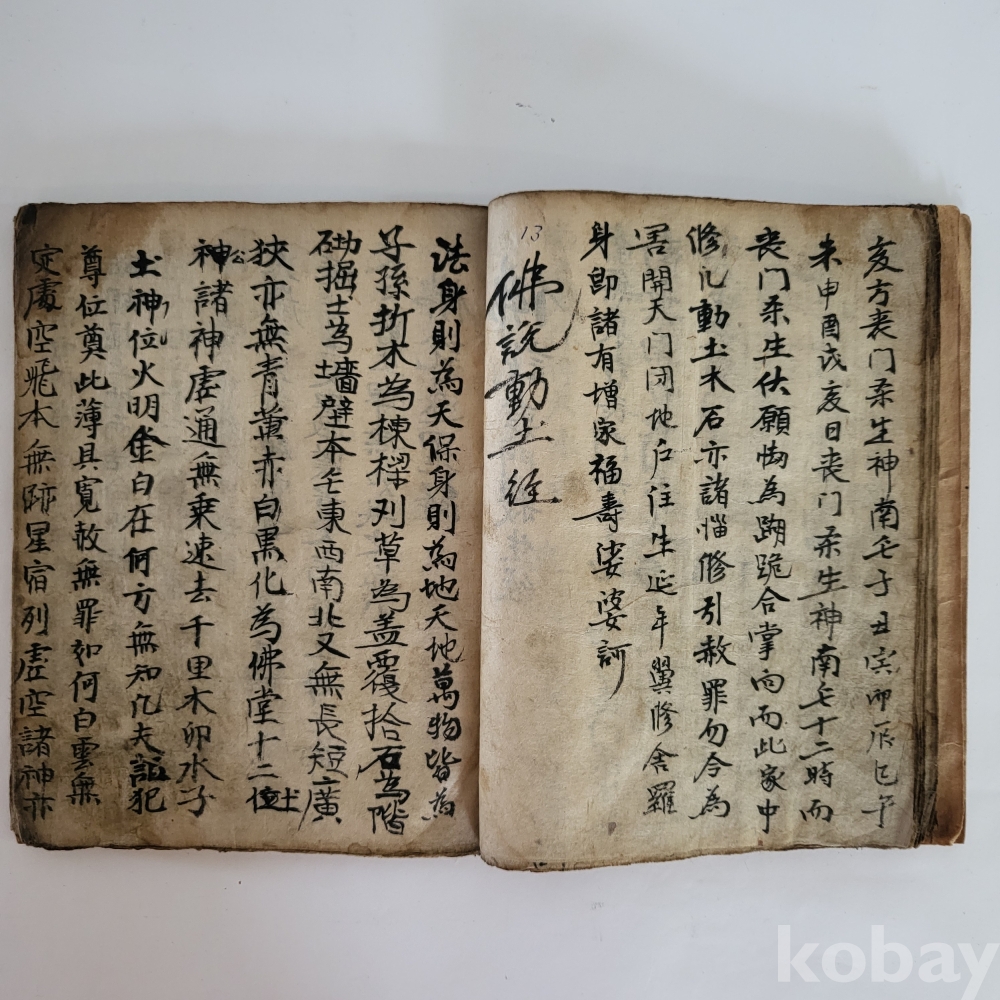 亥方丧门柔生神南无子丑寅卯辰巳午
未申酉戌亥日丧门柔生神南无十二時而
丧门柔生伏願 為踋跪合掌向而此家中
修凡動土木石亦諸惱修引赦罪勿令為
害開天门闭地户往生延年翼修舍羅
身即諸有增家福壽娑婆訶
13
佛説動土经
法身則為天保身則為地天地萬物皆為
子孫折木為棟樑刈草為盖覆拾石為階
砌掘土為墻壁本无東西南北又無長短廣
狹亦無青黄赤白黒化為佛堂十二位土
神公諸神虚通無乗速去千里木卯水子
土神位火明金白在何方無知凡夫 犯
尊位奠此薄具寬赦無罪如何白雲無
定處空飛本無跡星宿列虚空諸神亦
kobay